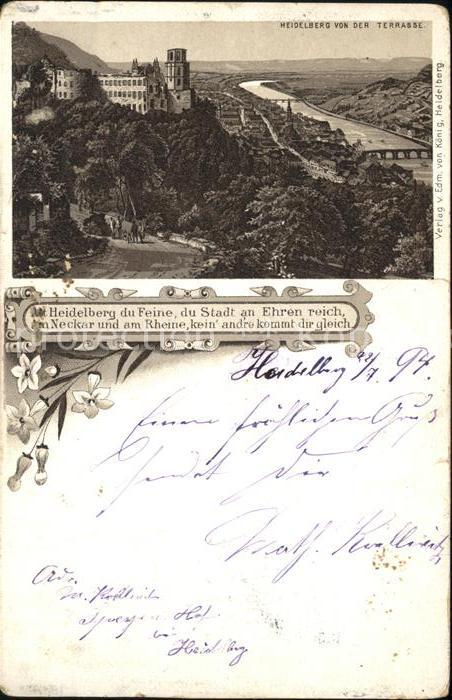 HEIDELBERG VON DER TERRASSE.
Verlag v. Edm. von König, Heidelberg.
Alt Heidelberg du Feine, du Stadt an Ehren reich,
Am Neckar und am Rheine, kein' andre kommt dir gleich.
Heidelberg 94.
Einen fröhlichen Gruß
sendet Dir
Math.
Adr.
M.
Hof
Heidelberg